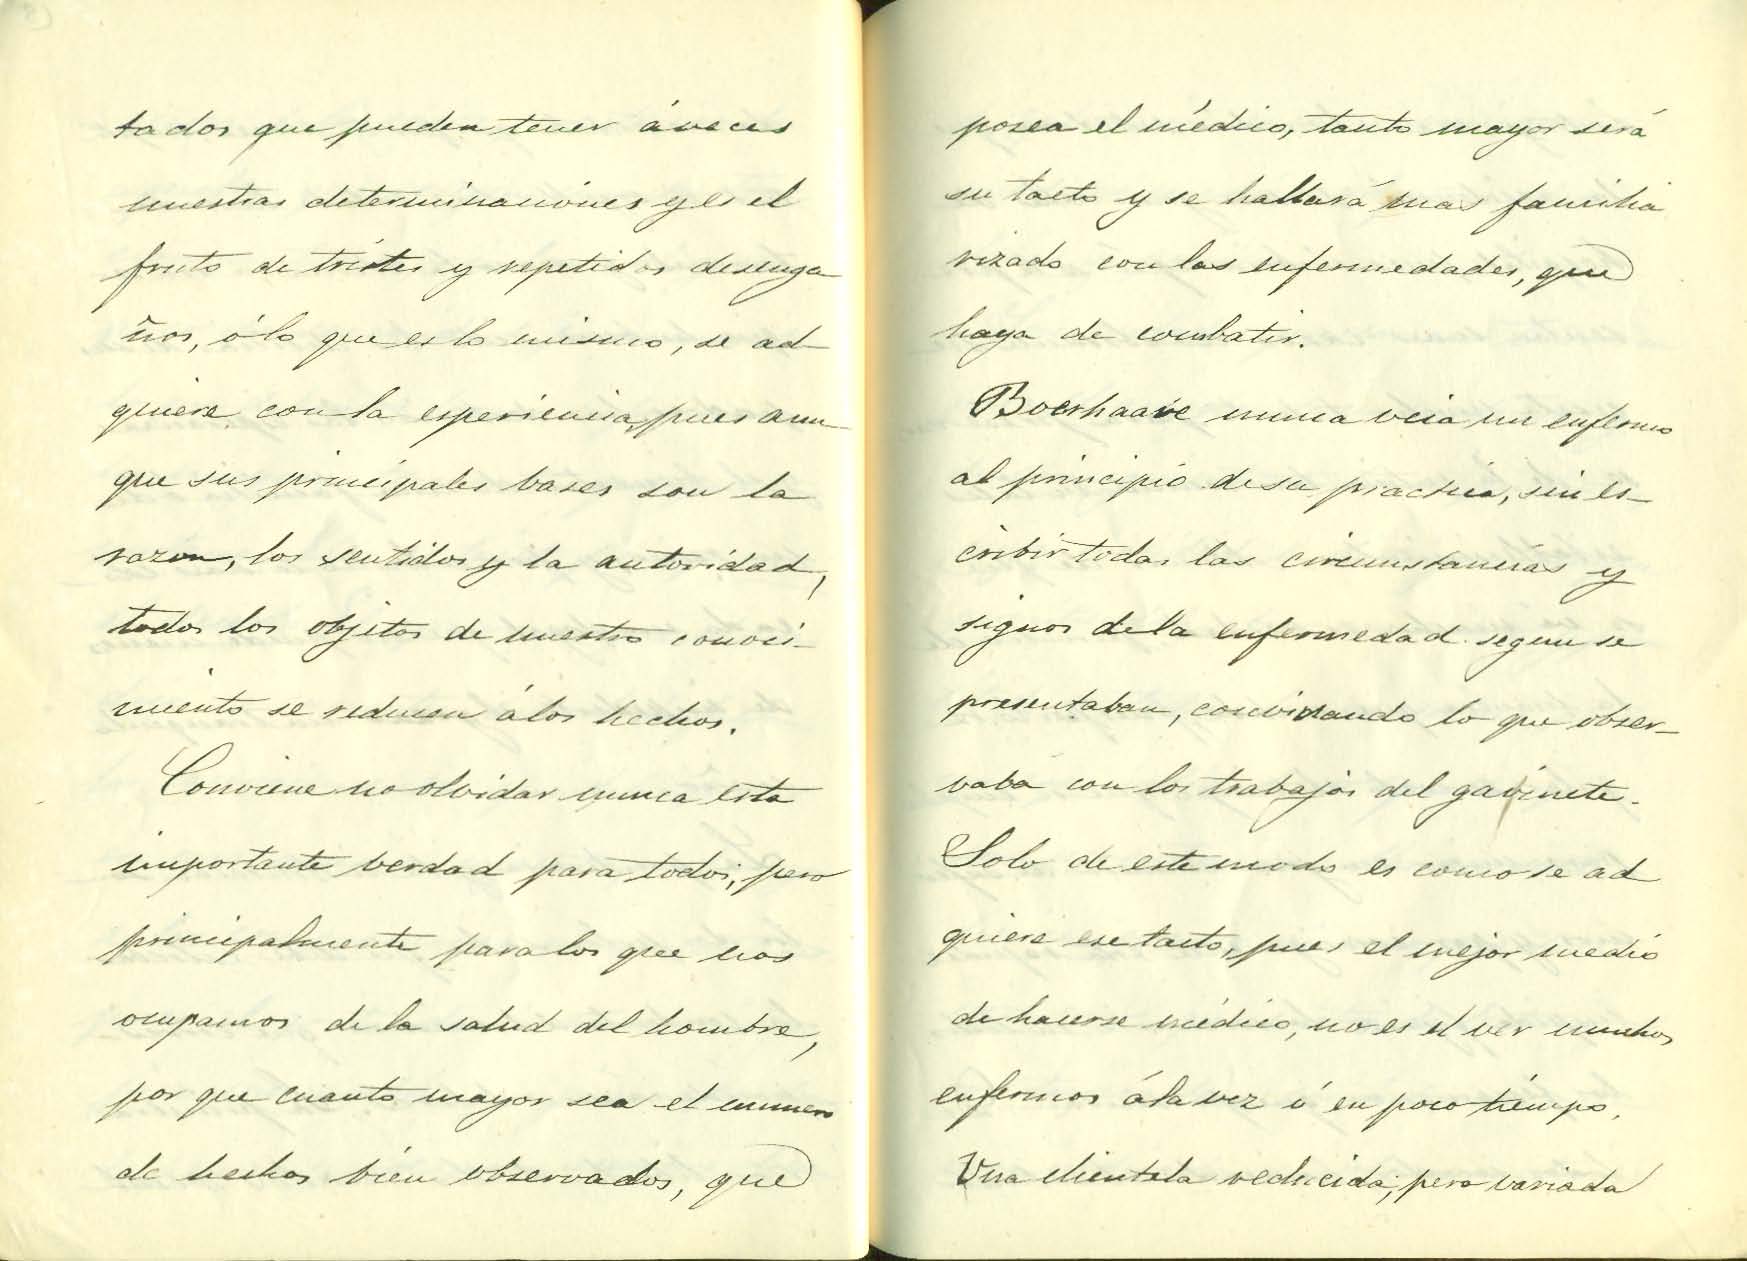 tados que pueden tener áveces
nuestras determinaciones y es el
fruto de tristes y repetidos desenga
ños, ó lo que es lo mismo, se ad-
quiere con la esperiencia, pues aun-
que sus principales bases son la
razon, los sentidos y la autoridad,
todos los objetos de nuestro conoci-
miento se reducen á los hechos.
Conviene no olvidar nunca esta
importante verdad para todos, pero
principalmente para los que nos
ocupamos de la salud del hombre,
por que cuanto mayor sea el numero
de hechos bien observados, que
posea el médico, tanto mayor será
su tacto y se hallará mas familia
rizado con las enfermedades, que
haya de combatir.
Boerhaave nunca veia un enfermo
al principio de su practica, sin es-
cribir todas las circunstancias y
signos de la enfermedad segun se
presentaban, convinando lo que obser-
vaba con los trabajos del gavinete.
Solo de este modo es como se ad
quiere ese tacto, pues el mejor medio
de hacerse médico, no es el ver muchos
enfermos á la vez ó en poco tiempo.
Una clientela reducida, pero variada